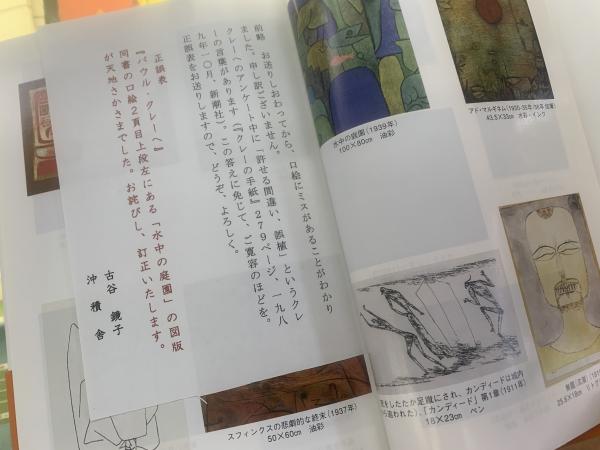 前略
お送りしおわってから、口絵にミスがあることがわかり
ました。申し訳ございません。
クレーへのアンケート中に「許せる間違い、誤植」というクレ
ーの言葉があります(『クレーの手紙』279ページ、一九八
九年一〇月、新潮社)。この答えに免じて、ご寛容のほどを。
正誤表をお送りしますので、どうぞ、よろしく。
正誤表
『パウル・クレーへ』
同書の口絵2頁目上段左にある「水中の庭園」の図版
が天地さかさまでした。お詫びし、訂正いたします。
古谷鏡子
沖積舎
水中の庭園(1939年)
100×80cm 油彩
アド・マルギネム(1930-35年-36年 加筆)
43.5×33cm 水彩・インク
スフィンクスの悲劇的な終末(1937年)
50×60cm 油彩
をしたたか足蹴にされ、カンディードは城内
ら追われた)、『カンディード』第1章(1911年)
18×23cm ペン
25.6×18cm リトグ